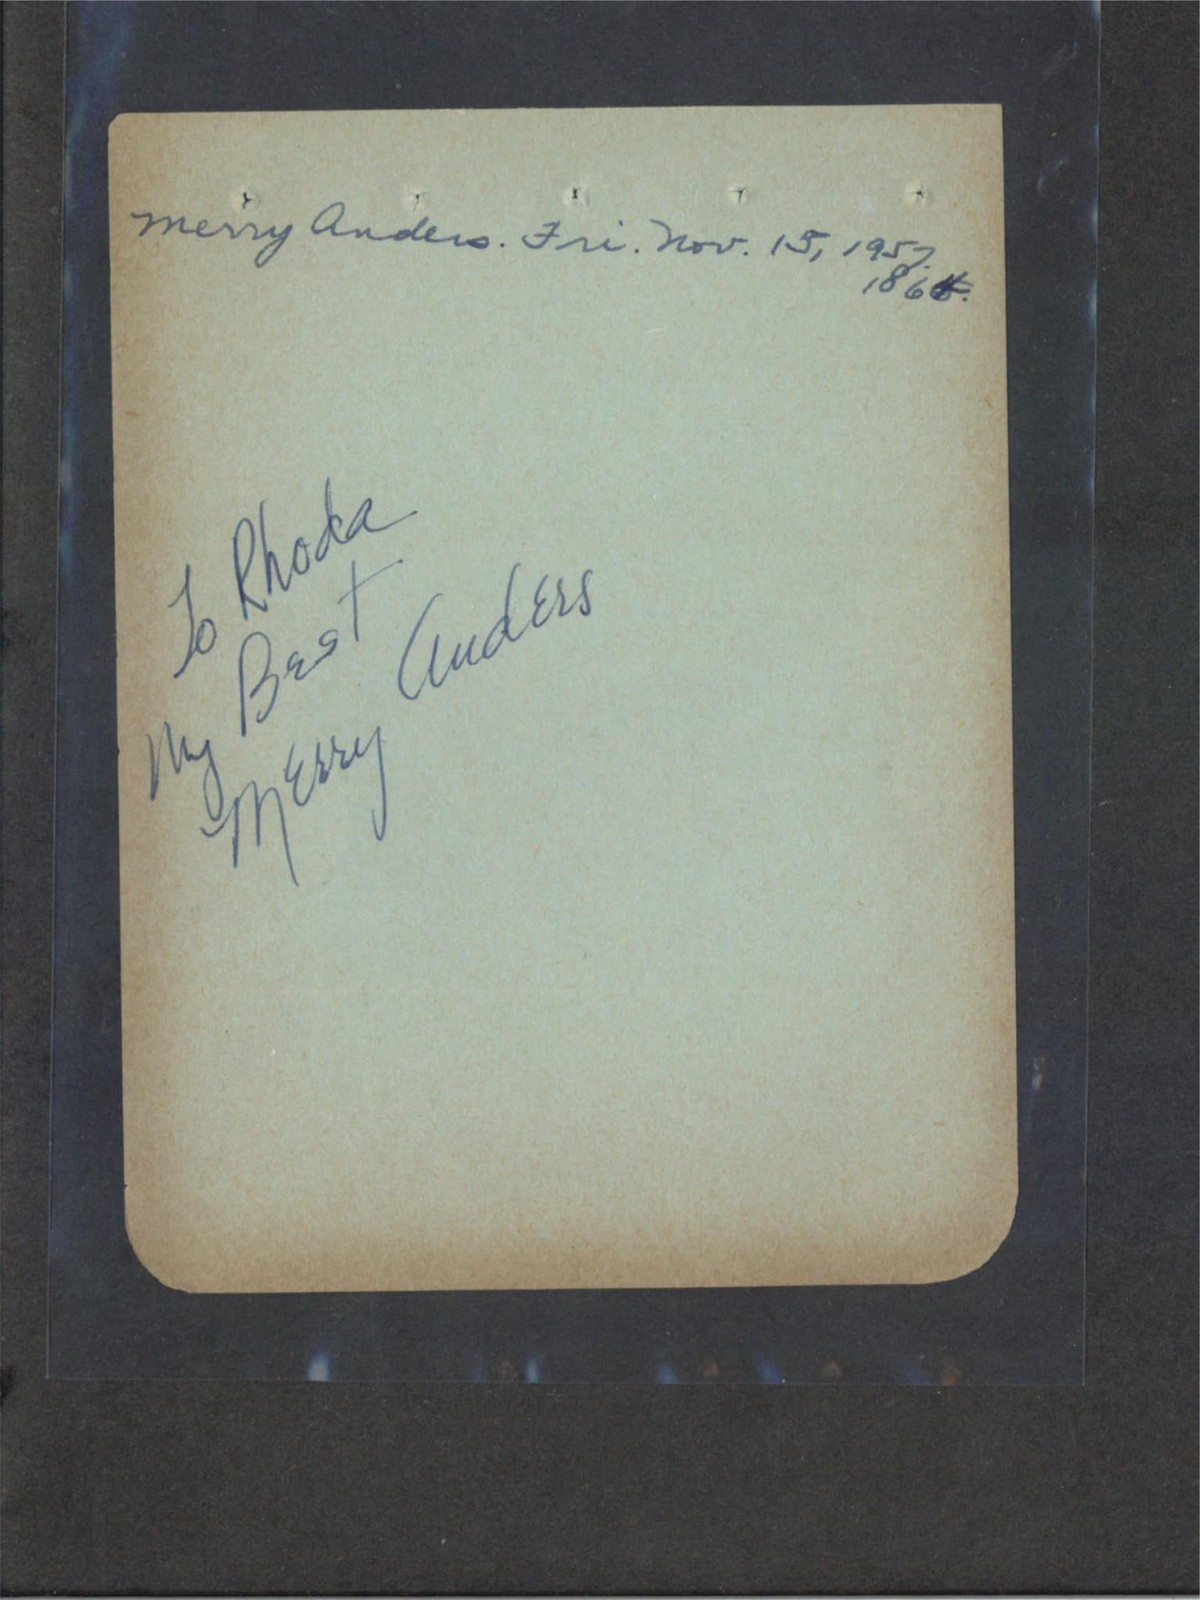 Merry Anders. Fri. Nov. 15, 1957.
To Rhoda
My Best
Merry Anders